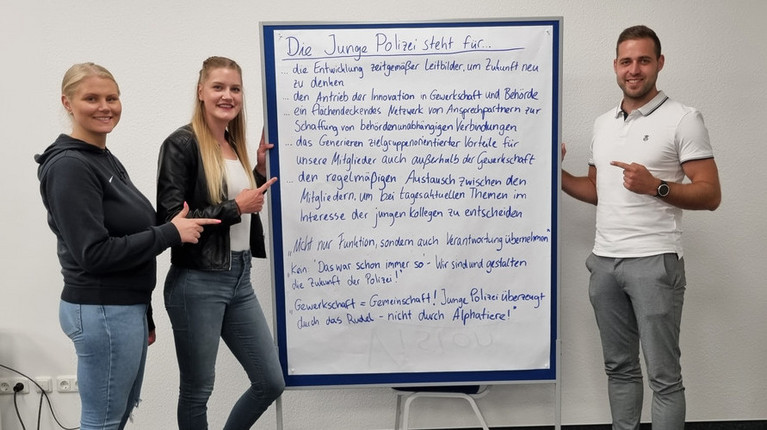 Die Junge Polizei steht für...
... die Entwicklung zeitgemäßer Leitbilder, um Zukunft neu
zu denken
... den Antrieb der Innovation in Gewerkschaft und Behörde
... ein flächendeckendes Netzwerk von Ansprechpartnern zur
Schaffung von behördenunabhängigen Verbindungen
... das Generieren zielgruppenorientierter Vorteile für
unsere Mitglieder auch außerhalb der Gewerkschaft
... den regelmäßigen Austausch zwischen den
Mitgliedern, um bei tagesaktuellen Themen im
Interesse der jungen Kollegen zu entscheiden
„Nicht nur Funktion, sondern auch Verantwortung übernehmen"
„Kein 'Das war schon immer so' - Wir sind und gestalten
die Zukunft der Polizei!"
„Gewerkschaft = Gemeinschaft! Junge Polizei überzeugt
durch das Rudel - nicht durch Alphatiere!"